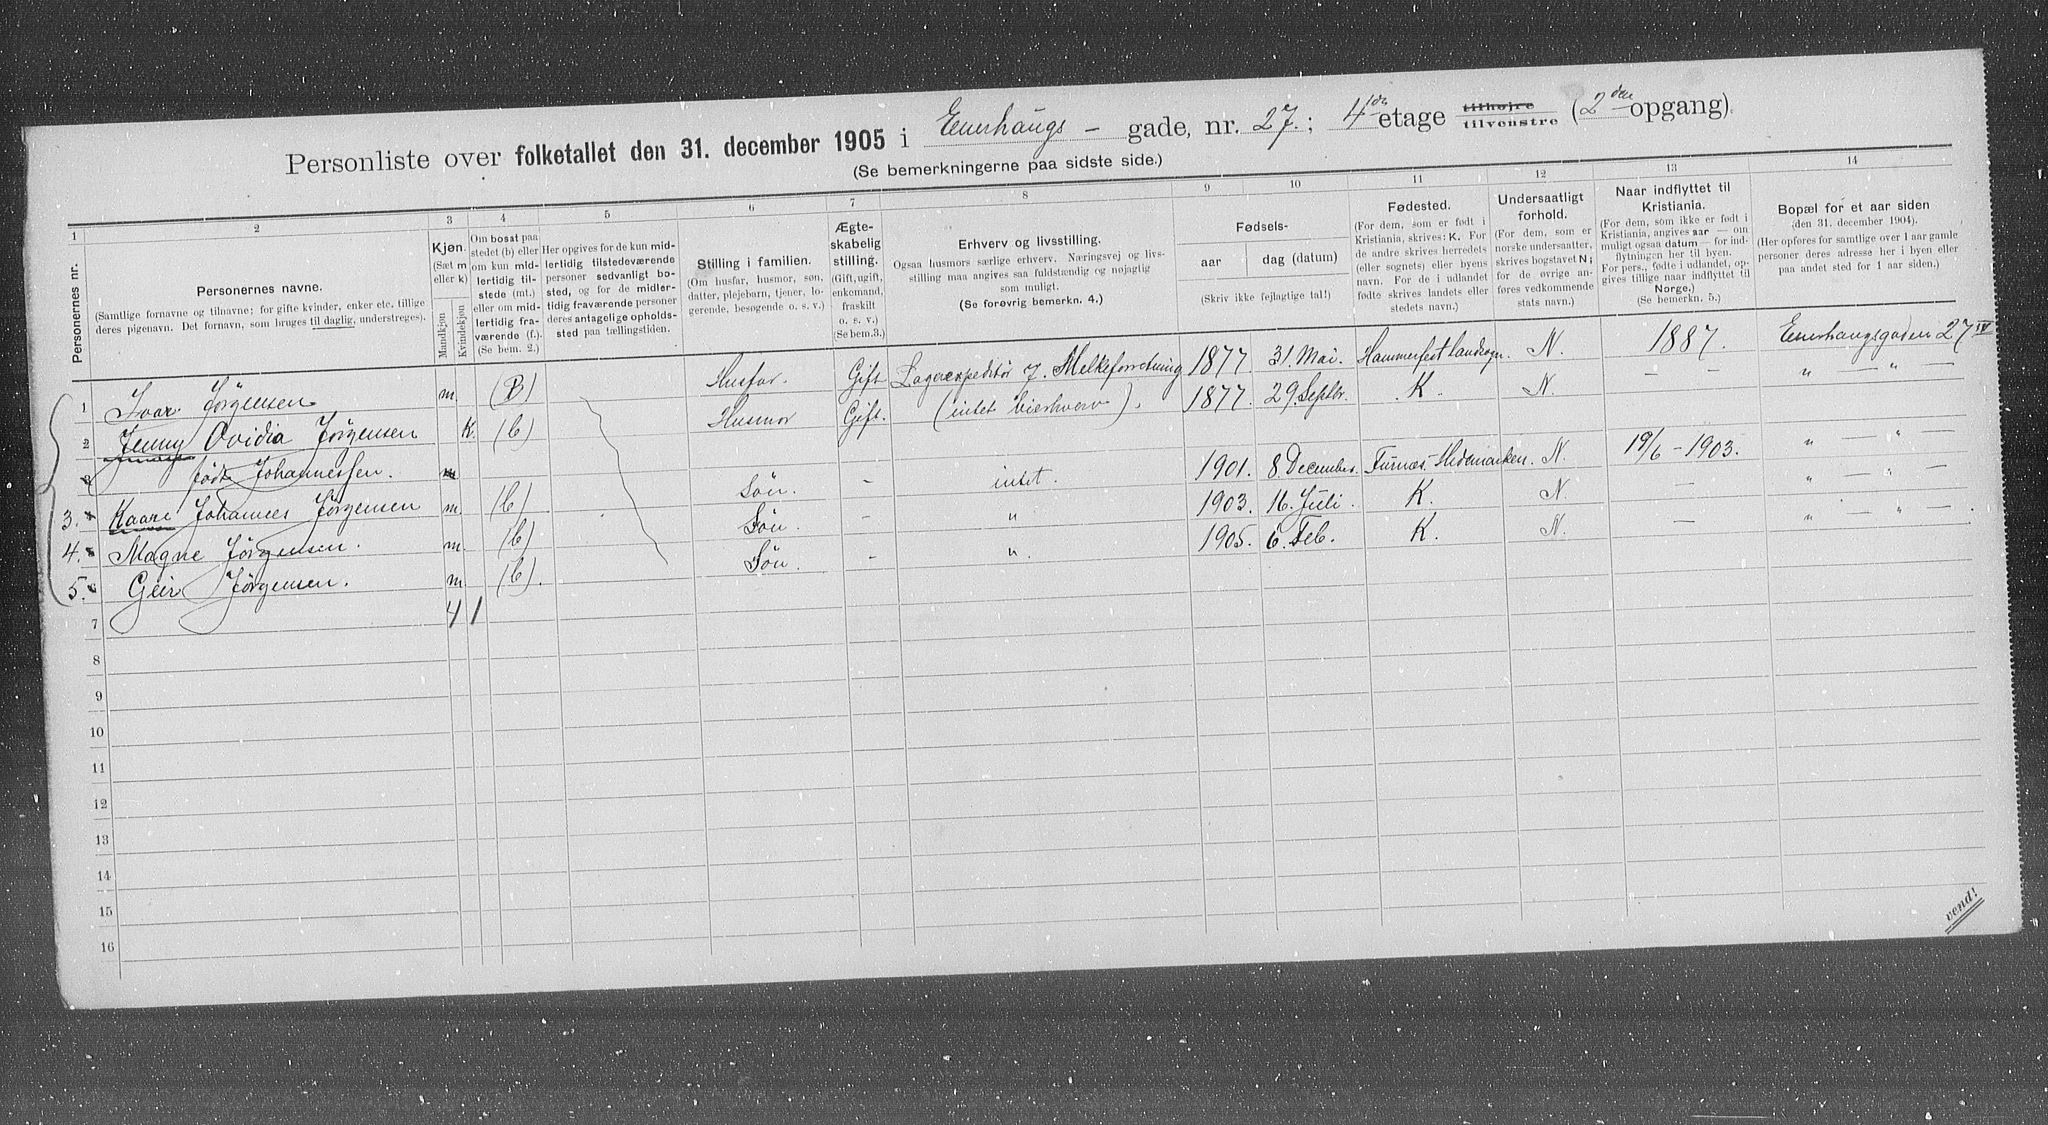 Personliste over folketallet den 31. december 1905 i Enerhaugs – gade, nr. 27. ; 4de etage tilhøjre tilvenstre (2den opgang).
(Se bemerkningerne paa sidste side.)
1 2 3 4 5 6 7 8 9 10 11 12 13 14
Personernes nr.
Personernes navne.
(Samtlige fornavne og tilnavne; for gifte kvinder, enker etc. tillige deres pigenavn. Det fornavn, som bruges til daglig, understreges).
Kjøn.
(Sæt m eller k)
Mandkjøn
Kvindekjøn
Om bosat paa stedet (b) eller om kun midlertidig tilstede (mt.) eller om midlertidig fraværende (f.). (Se bem. 2.)
Her opgives for de kun midlertidig tilstedeværende personer sedvanligt bosted, og for de midlertidig fraværende personer deres antagelige opholdssted paa tællingstiden.
Stilling i familien.
(Om husfar, husmor, søn, datter, plejebarn, tjener, logerende, besøgende o. s. v.)
Ægteskabelig stilling.
(Gift, ugift, enkemand, fraskilt o. s. v.) (Se bem.3.)
Erhverv og livsstilling.
Ogsaa husmors særlige erhverv. Næringsvej og livsstilling maa angives saa fuldstændig og nøjagtig som muligt.
(Se forøvrig bemerkn. 4.)
Fødsels-
aar
dag (datum)
(Skriv ikke fejlagtige tal!)
Fødested.
(For dem, som er født i Kristiania, skrives: K. For de andre skrives herredets (eller sognets) eller byens navn. For de i udlandet fødte skrives landets eller stedets navn.)
Undersaatligt forhold.
(For dem, som er norske undersaatter, skrives bogstavet N; for de øvrige anføres vedkommende stats navn.)
Naar indflyttet til Kristiania.
(For dem, som ikke er født i Kristiania, angives aar — om muligt ogsaa datum — for indflytningen her til byen. For pers., fødte i udlandet, opgives tillige naar indflyttet til Norge.)
(Se bemerkn. 5.)
Bopæl for et aar siden
(den 31. december 1904).
(Her opføres for samtlige over 1 aar gamle personer deres adresse her i byen eller paa andet sted for 1 aar siden.)
1 Ivar Jørgensen m. (B) Husfar. Gift Lagerexpeditör i Melkeforretning 1877 31. Mai. Hammerfest landsogn. N. 1887. Enerhaugsgaden 27 IV
2 Jenny Ovidia Jørgensen K. (b) Husmor Gift. (intet bierhverv). 1877. 29. Septbr. K. N. — — „ — „ —
født Johannessen.
3. Kaare Johannes Jørgensen m (b) Søn. – intet. 1901. 8. December. Furnæs. Hedemarken. N. 19/6 – 1903. „ — „ —
4. Magne Jørgensen. m. (b) Søn. – „ 1903. 16. Juli. K. N. — „ — „ —
5. Geir Jørgensen. m (b). Søn. – „. 1905. 6. Feb. K. N. — „ — „ — .
7 4 1
8
9
10
11
12
13
14
15
16
vend!